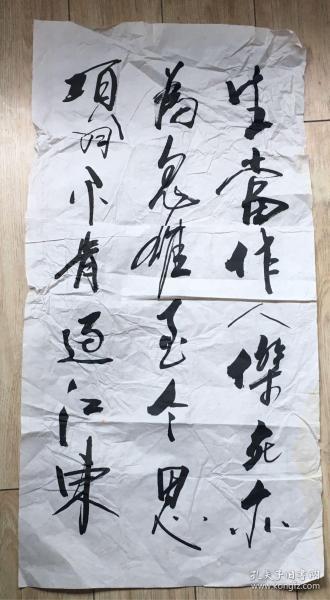 生當作人傑死亦
為鬼雄至今思
項羽不肯過江東
孔夫子旧书网
www.kongfz.com